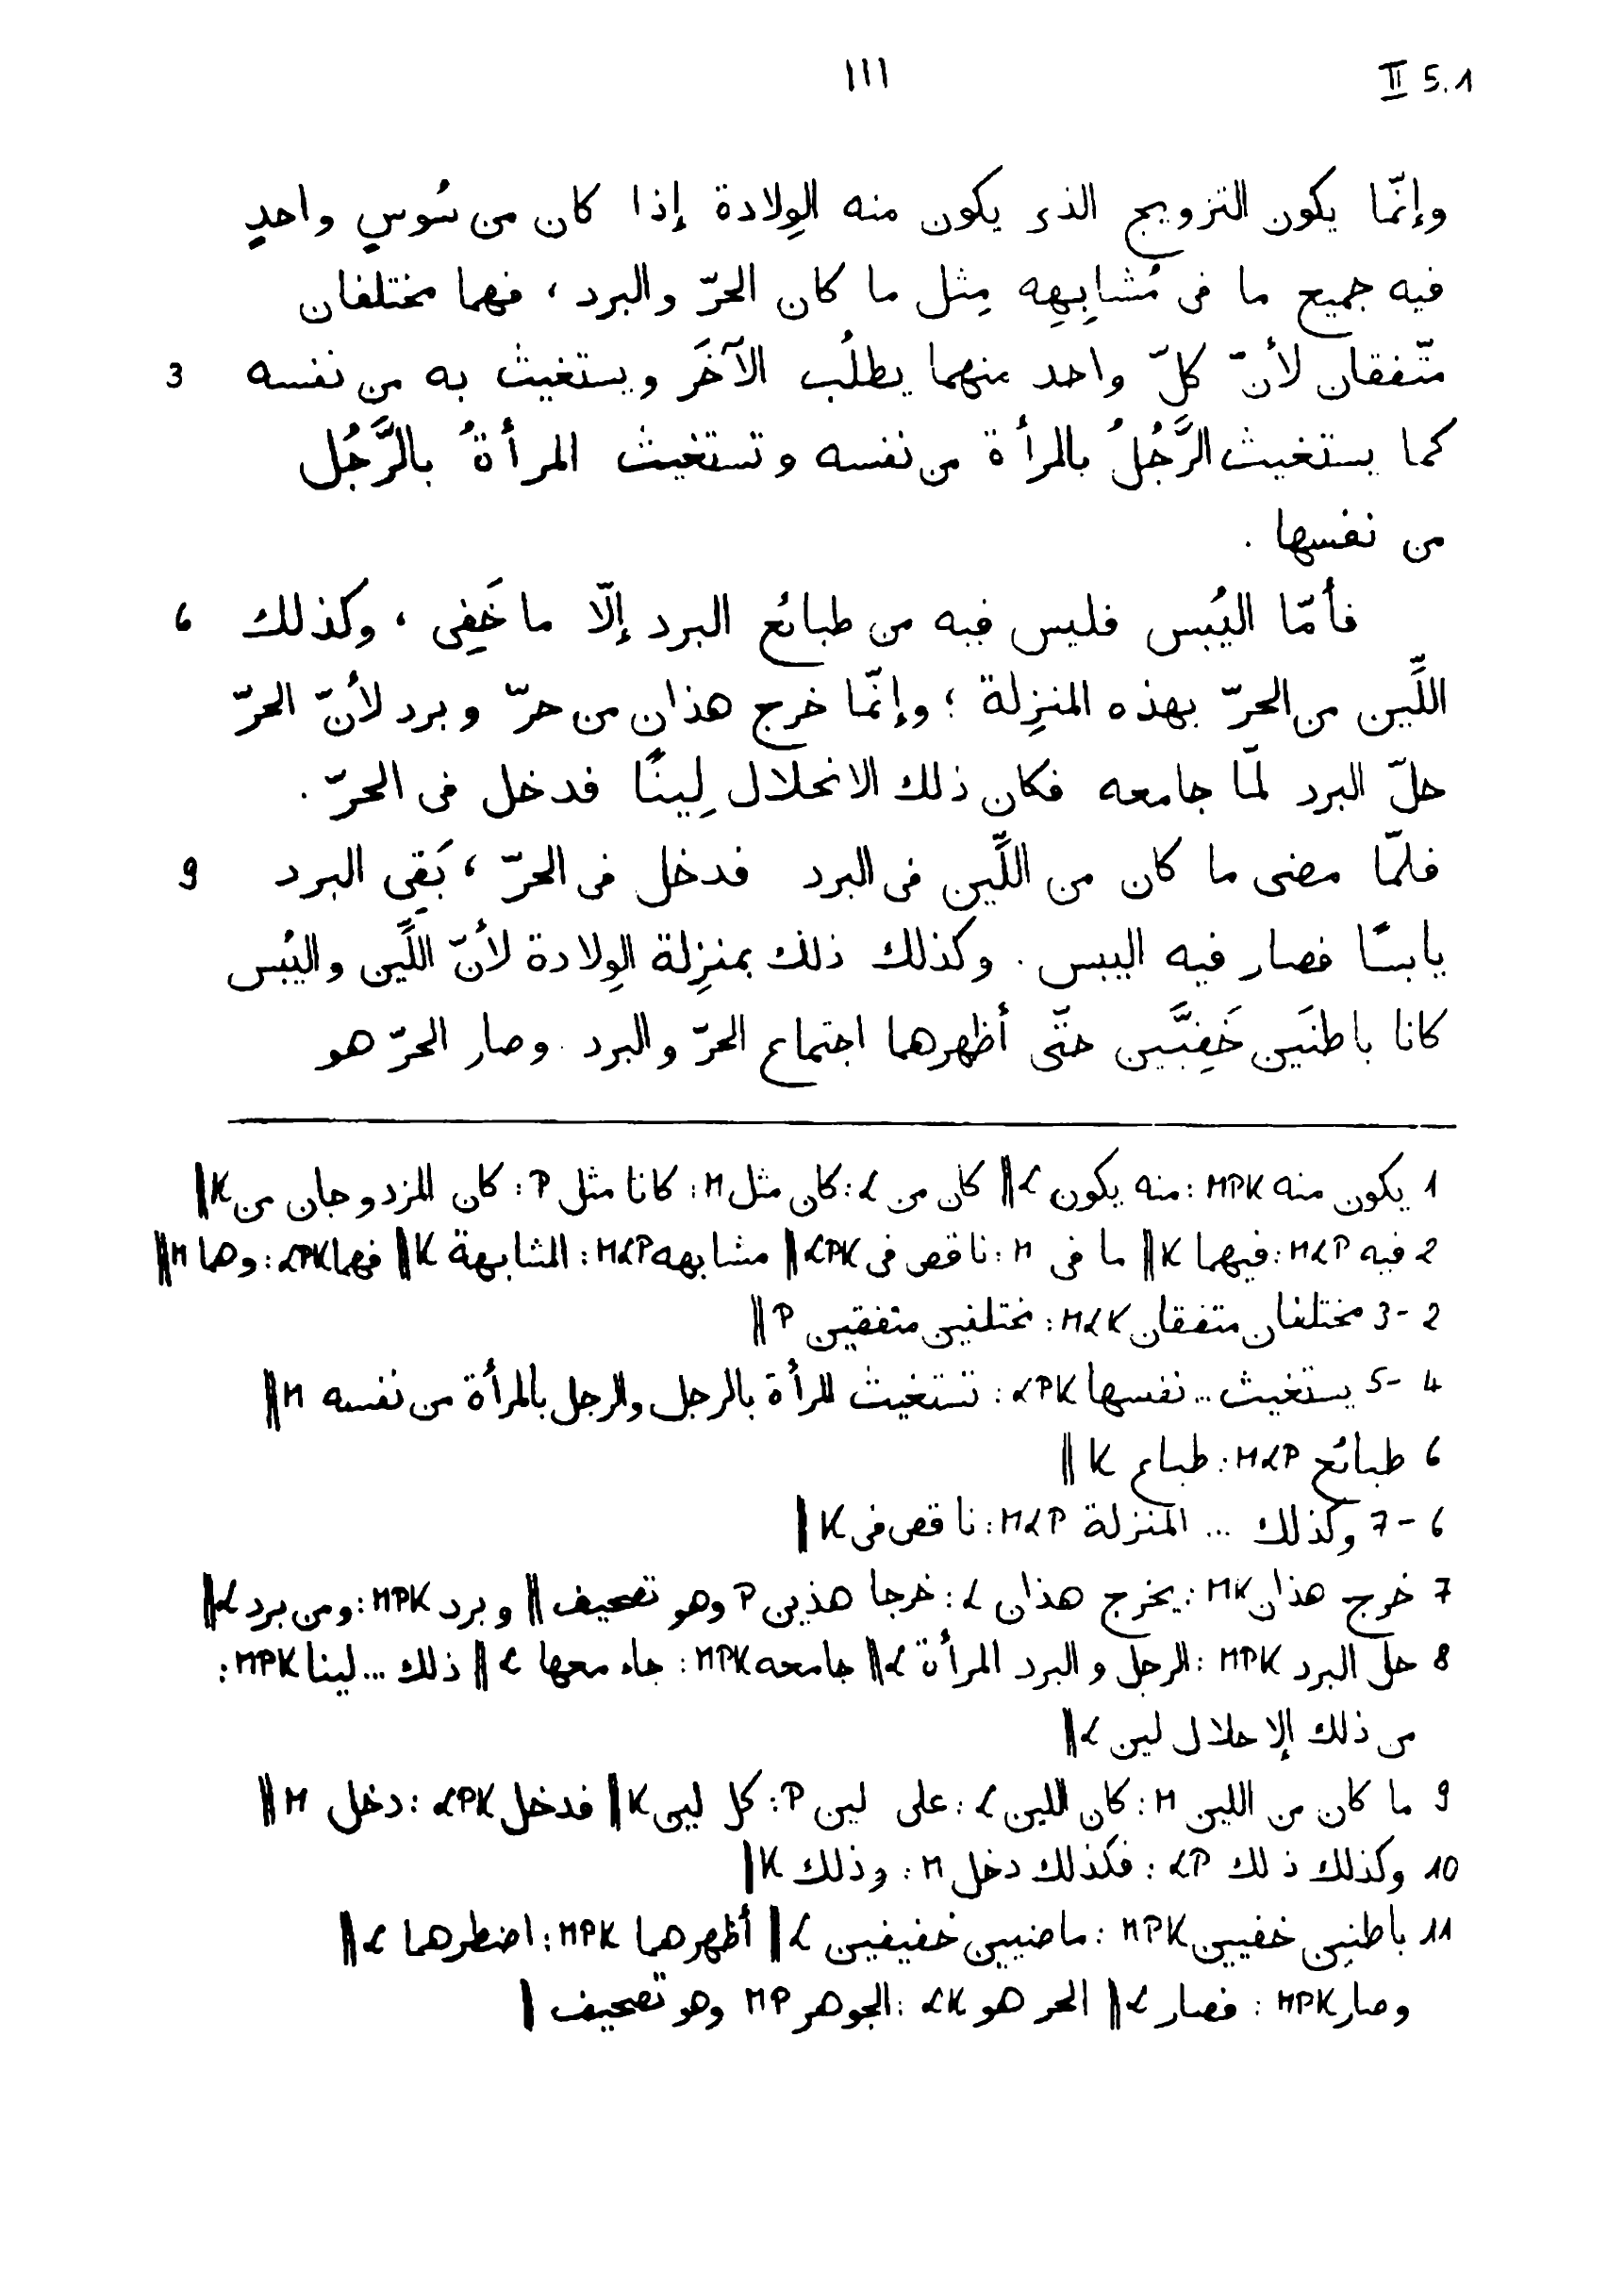 ١١١ II 5.1
وإنّما يكون التزويج الذى يكون منه الوِلادة إذا كان من سُوسٍ واحدٍ
فيه جميع ما فى مُشابِهِه مِثل ما كان الحرّ والبرد ، فهما مختلفان
متّفقان لأنّ كلّ واحد منهما يطلُب الآخَر ويستغيث به من نفسه 3
كما يستغيث الرَّجُلُ بالمرأة من نفسه وتستغيث المرأةُ بالرَّجُل
من نفسها .
فأمّا اليُبس فليس فيه من طبائع البرد إلّا ما خَفِى ، وكذلك 6
اللِّين من الحرّ بهذه المنزِلة ؛ وإنّما خرج هذان من حرّ وبرد لأنّ الحرّ
حلّ البرد لمّا جامعه فكان ذلك الانحلال لِينًا فدخل فى الحرّ .
فلمّا مضى ما كان من اللِّين فى البرد فدخل فى الحرّ ، بَقِى البرد 9
يابسًا فصار فيه اليبس . وكذلك ذلك بمنزِلة الوِلادة لأنّ اللِّين واليُبس
كانا باطنَين خَفِيَّين حتّى أظهرهما اجتماع الحرّ والبرد . وصار الحرّ هو
1 يكون منه MPK : منه يكون L || كان من L : كان مثل M : كانا مثل P : كان المزدوجان من K ||
2 فيه MLP : فيهما K || ما فى M : ناقص فى LPK || مشابهه MLP : المشابهة K || فهما LPK : وهما M ||
2-3 مختلفان متفقان MLK : مختلفين متفقين P ||
4-5 يستغيث … نفسها LPK : تستغيث المرأة بالرجل والرجل بالمرأة من نفسه M ||
6 طبائع MLP : طباع K ||
6-7 وكذلك … المنزلة MLP : ناقص فى K |
7 خرج هذان MK : يخرج هذان L : خرجا هذين P وهو تصحيف || وبرد MPK : ومن برد L ||
8 حل البرد MPK : الرجل والبرد المرأة L || جامعه MPK : جاء معها L || ذلك … لينا MPK :
من ذلك إلا حلال لين L ||
9 ما كان من اللين M : كان اللين L : على لين P : كل ليى K || فدخل LPK : دخل M ||
10 وكذلك ذلك LP : فكذلك دخل M : وذلك K |
11 باطنين خفيين MPK : ماضيين خفيفين L || أظهرهما MPK : اضطرهما L ||
وصار MPK : فصار L || الحر هو LK : الجوهر MP وهو تصحيف |